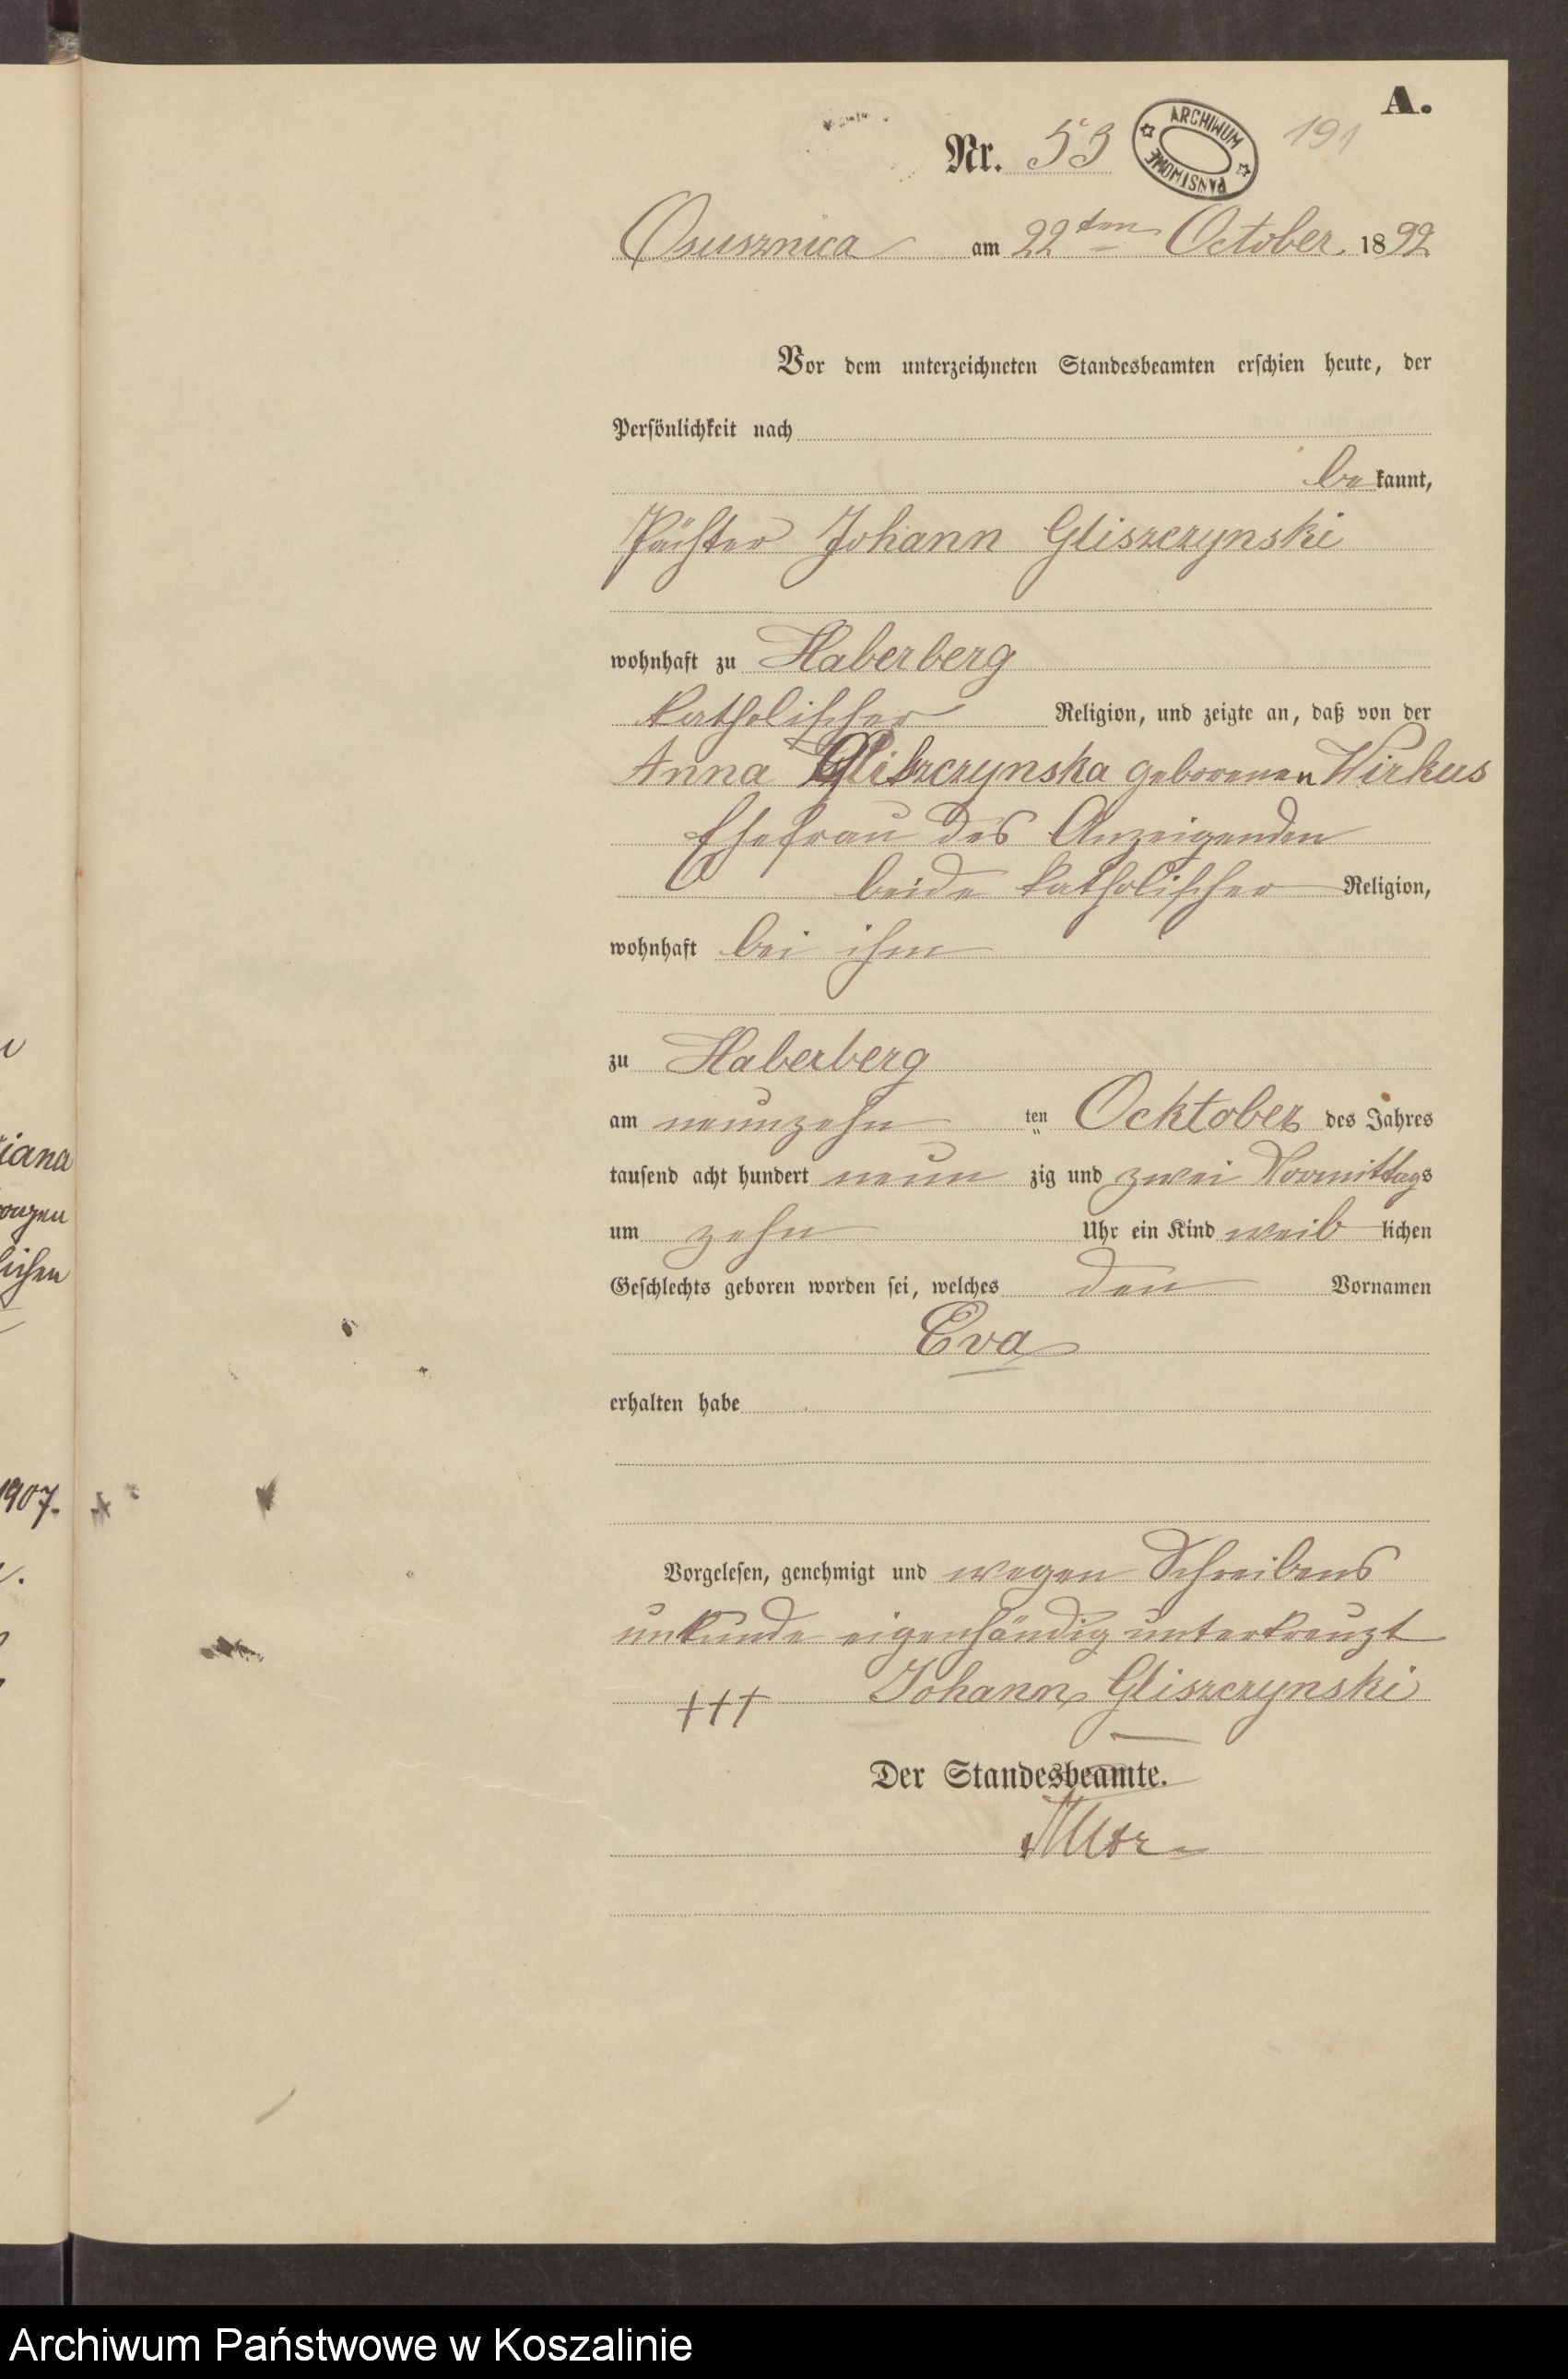 A.
Nr. 53
ARCHIWUM PAŃSTWOWE
191
Osusznica am 22ten October 1892
Vor dem unterzeichneten Standesbeamten erschien heute, der
Persönlichkeit nach
be kannt,
Pächter Johann Gliszczynski
wohnhaft zu Haberberg
katholischer Religion, und zeigte an, daß von der
Anna Gliszczynska geborenen Wirkus
Ehefrau des Anzeigenden
beide katholischer Religion,
wohnhaft bei ihm
zu Haberberg
am neunzehn ten Ocktober des Jahres
tausend acht hundert neun zig und zwei Vormittags
um zehn Uhr ein Kind weib lichen
Geschlechts geboren worden sei, welches den Vornamen
Eva
erhalten habe
Vorgelesen, genehmigt und wegen Schreibens
unkunde eigenhändig unterkreuzt
+++ Johann Gliszczynski
Der Standesbeamte.
iana
lichen
1907.
Archiwum Państwowe w Koszalinie